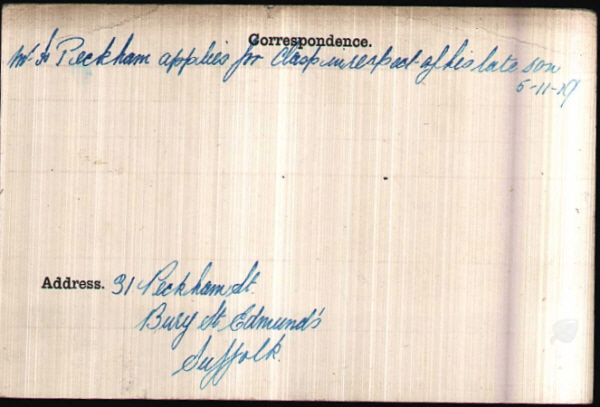 Correspondence.
Mr H Peckham applies for Clasp in respect of his late son
5-11-19
Address. 31 Peckham St
Bury St Edmund's
Suffolk.